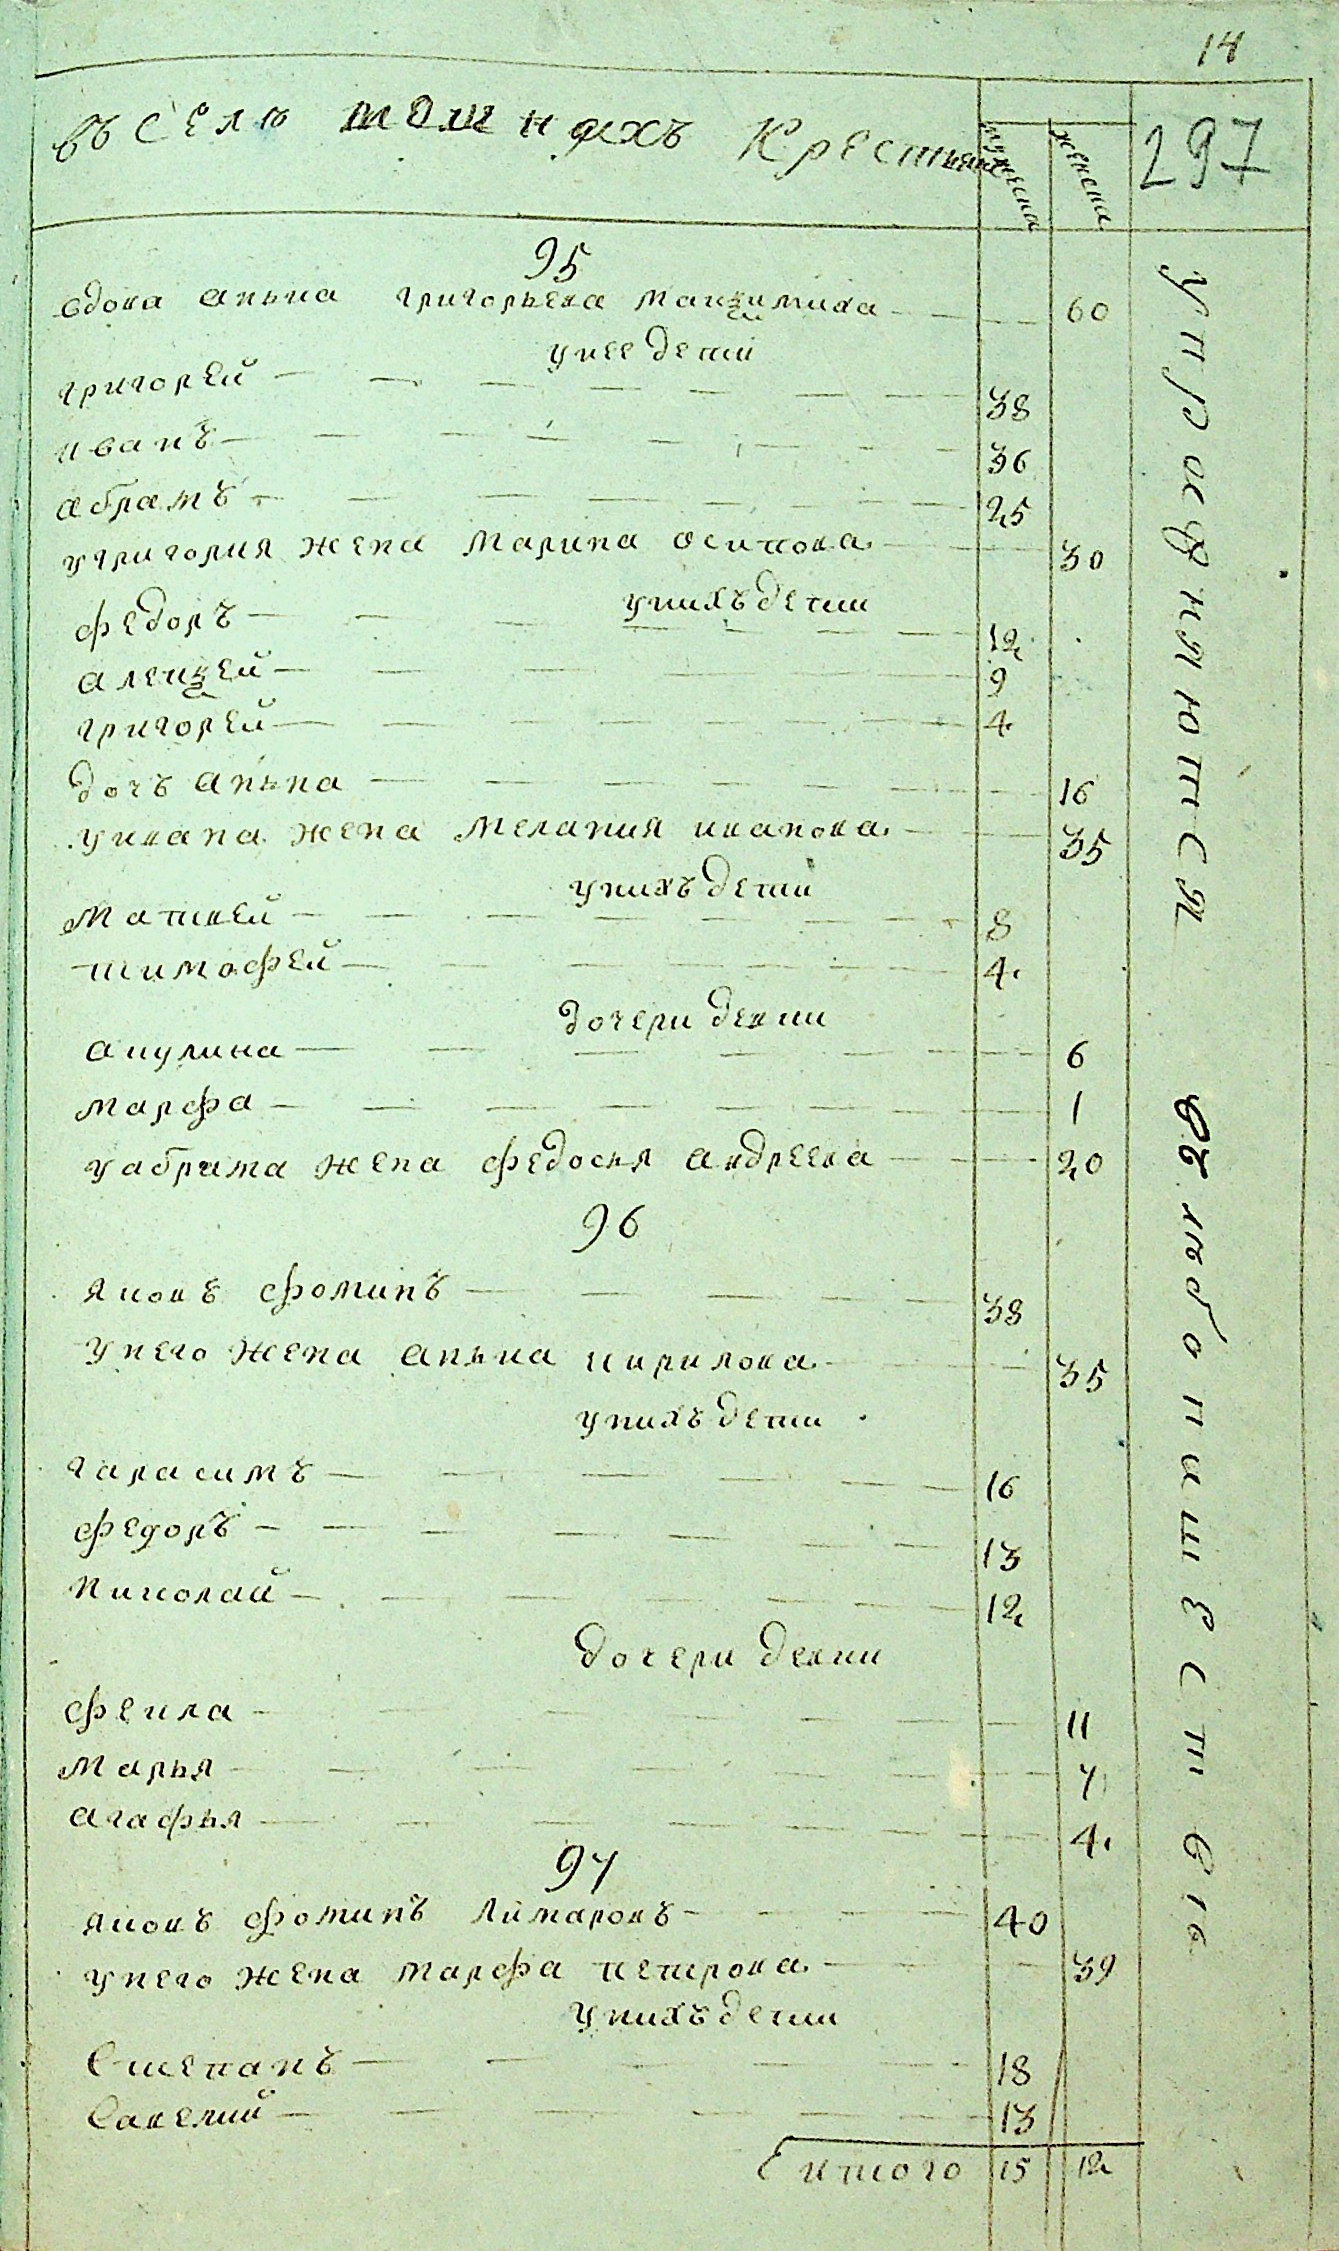 14
въ селѣ томинахъ Крестьянъ мужеска женска 297
95
вдова анъна григорьева максимиха 60
унее дети
григорей 38
иванъ 36
абрамъ 25
угригория жена марина осипова 30
унихъ дети
федоръ 12
алексей 9
григорей 4
дочь анъна 16
уивана жена мелания иванова 35
унихъ дети
матвей 8
тимофей 4
дочери девки
акулина 6
марфа 1
уабрама жена федосья андреева 20
96
яковъ фоминъ 38
унего жена анъна кирилова 35
унихъ дети
гарасимъ 16
федоръ 13
николай 12
дочери девки
фекла 11
марья 7
агафья 4
97
яковъ фоминъ 40
унего жена марфа петрова 39
унихъ дети
степанъ 18
савелий 13
итого 15 12
упражняются